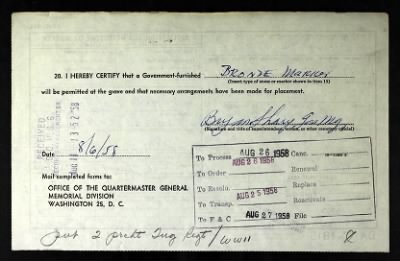 20. I HEREBY CERTIFY that a Government-furnished Bronze Marker
(Insert type of stone or marker shown in item 15)
will be permitted at the grave and that necessary arrangements have been made for placement.
(Signature and title of superintendent, sexton, or other cemetery official)
RECEIVED
8/6/58
Date
Mail completed forms to:
OFFICE OF THE QUARTERMASTER GENERAL
MEMORIAL DIVISION
WASHINGTON 25, D. C.
To Process AUG 26 1958 Canc.
AUG 26 1958
To Order Renewal
To Resolu. AUG 25 1958 Replace
To Transp. Reactivate
To F & C AUG 27 1958 File
Pvt 2 Engr Regt / WWII